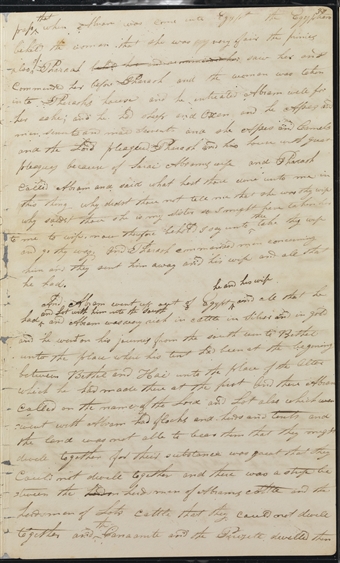 pass that when Abram was come into Egypt the Egyptians
beheld the woman that she was very fair the princes
also of Pharaoh saw her and
commanded her before Pharaoh and the woman was taken
into Pharaohs house and he intreated Abram well for
her sake; and he had sheep and Oxen and he asses and
men servants and maid servants and she asses and Camels
and the Lord plagued Pharaoh and his house with great
plagues because of Sarai Abrams wife and Pharaoh
called Abram and said what hast thou done unto me in
this thing why didst thou not tell me that she was thy wife
why saidst thou she is my sister so I might have taken her
to me to wife now therefore behold I say unto thee take thy wife
and go thy way and Pharaoh commanded men concerning
him and they sent him away and his wife and all that
he had.
And Abram went up out of Egypt he and his wife and all that he
had and Lot with him unto the South and Abram was very rich in cattle in silver and in gold
and he went on his journey from the south even to Bethel
unto the place where his tent had been at the begining
between Bethel and Hai unto the place of the alter
which he had made there at the first and there Abram
called on the name of the Lord and Lot also which
went with Abram had flocks and herds and tents and
the land was not able to bear them that they might
dwell together for their substance was great that they
could not dwell together and there was a strife be
tween the herd men of Abrams cattle and the
herd men of Lots cattle that they could not dwell
together and the Canaanite and the Perizite dwelled then